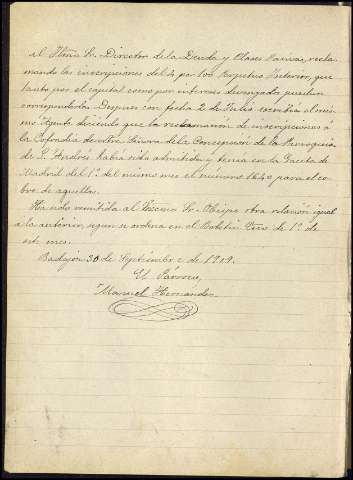 al Iltmo Sr. Director de la Deuda y Clases Pasivas, recla-
mando las inscripciones del 4 por 100 Perpetuo Interior, que
tanto por el capital como por intereses devengados puedan
corresponderla. Despues con fecha 2 de Julio escribía el mis-
mo Agente diciendo que la reclamación de inscripciones a
la Cofradía de ntra Señora de la Concepcion de la Parroquia
de S. Andrés había sido admitida y tenía en la Gaceta de
Madrid del 1º del mismo mes el número 1640 para el co-
bro de aquellas.
Ha sido remitida al Excmo Sr. Obispo otra relación igual
a la anterior, segun se ordena en el Boletín Ecco de 1º de
este mes.
Badajoz 30 de Septiembre de 1919.
El Párroco,
Manuel Hernández